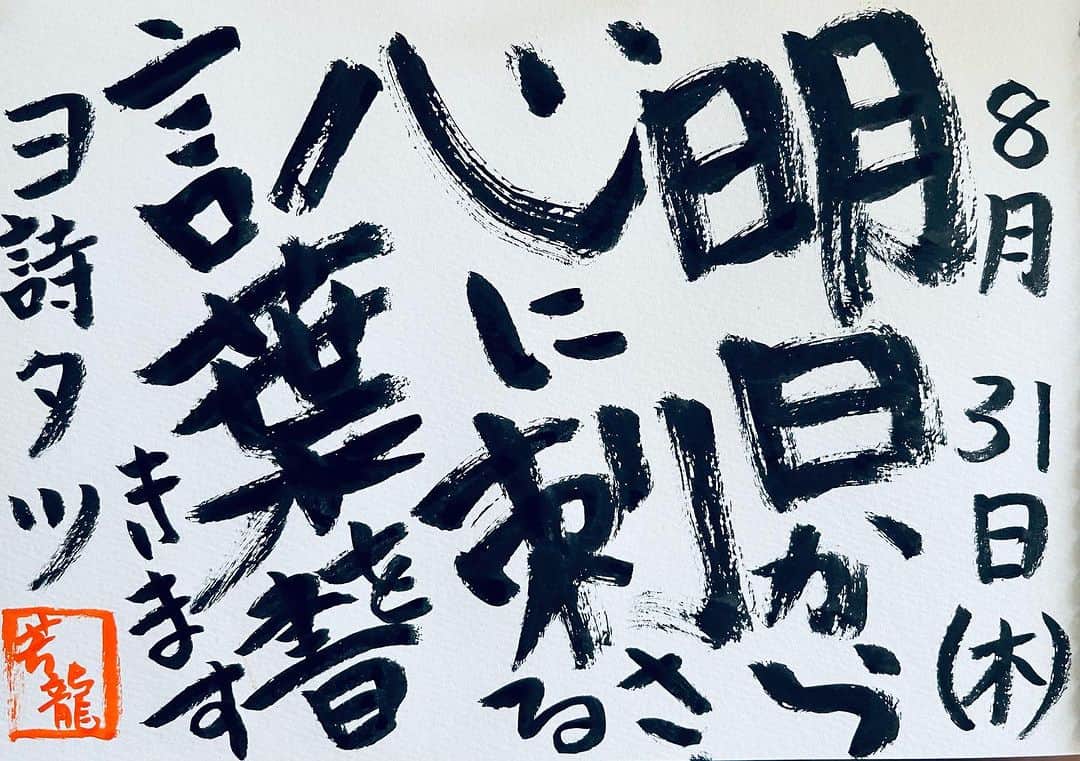 8月31日(木)
明日から
心に刺さる
言葉を書きます
ヨ詩タツ
龍